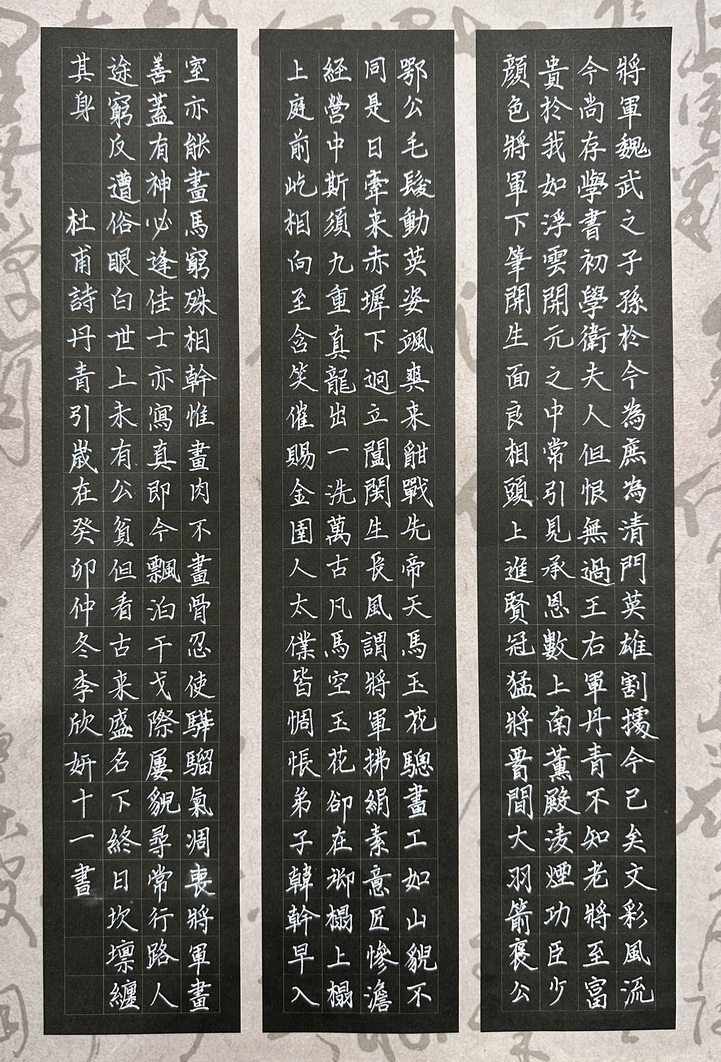 將軍魏武之子孫於今為庶為清門英雄割據今已矣文彩風流
今尚存學書初學衛夫人但恨無過王右軍丹青不知老將至富
貴於我如浮雲開元之中常引見承恩數上南薰殿淩煙功臣少
顏色將軍下筆開生面良相頭上進賢冠猛將晉間大羽箭褒公
鄂公毛髮動英姿颯爽来酣戰先帝天馬玉花驄畫工如山貌不
同是日牽来赤墀下迥立閶闔生長風謂將軍拂絹素意匠慘澹
經營中斯須九重真龍出一洗萬古凡馬空玉花卻在御榻上榻
上庭前屹相向至含笑催賜金圉人太僕皆惆悵弟子韓幹早入
室亦能畫馬窮殊相幹惟畫肉不畫骨忍使驊騮氣凋喪將軍畫
善蓋有神必逢佳士亦寫真即今飄泊干戈際屢貌尋常行路人
途窮反遭俗眼白世上未有公貧但看古来盛名下終日坎壈纏
其身 杜甫詩丹青引歲在癸卯仲冬李欣妍十一書